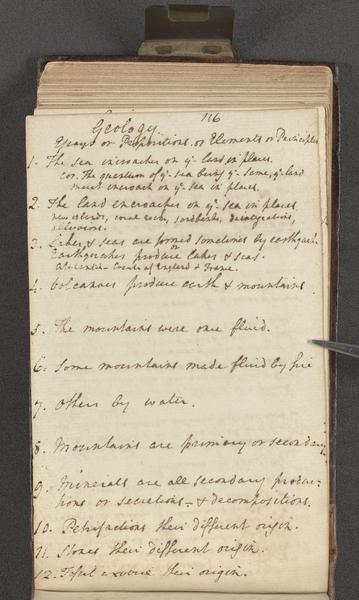 116
Geology
Essays or Propositions. or Elements or Principles
1. The sea encroaches on ye. land in places.
cor. The quantum of ye. sea being ye. same, ye. land
must encroach on ye. sea in places.
2. The land encroaches on ye. sea in places
new islands, coral rocks, sandbanks, disintegrations,
alluvions.
3. Lakes & seas are formed sometimes by earthquakes
or
Earthquakes produce lakes & seas.
Coasts of England & France.
4. Volcanoes produce earth & mountains.
5. The mountains were one fluid.
6. Some mountains made fluid by fire
7. Others by water.
8. Mountains are primary or secondary
9. Minerals are all secondary produc-
tions or secretions - & decompositions.
10. Petrifactions their different origin.
11. Stones their different origin.
12. their origin.